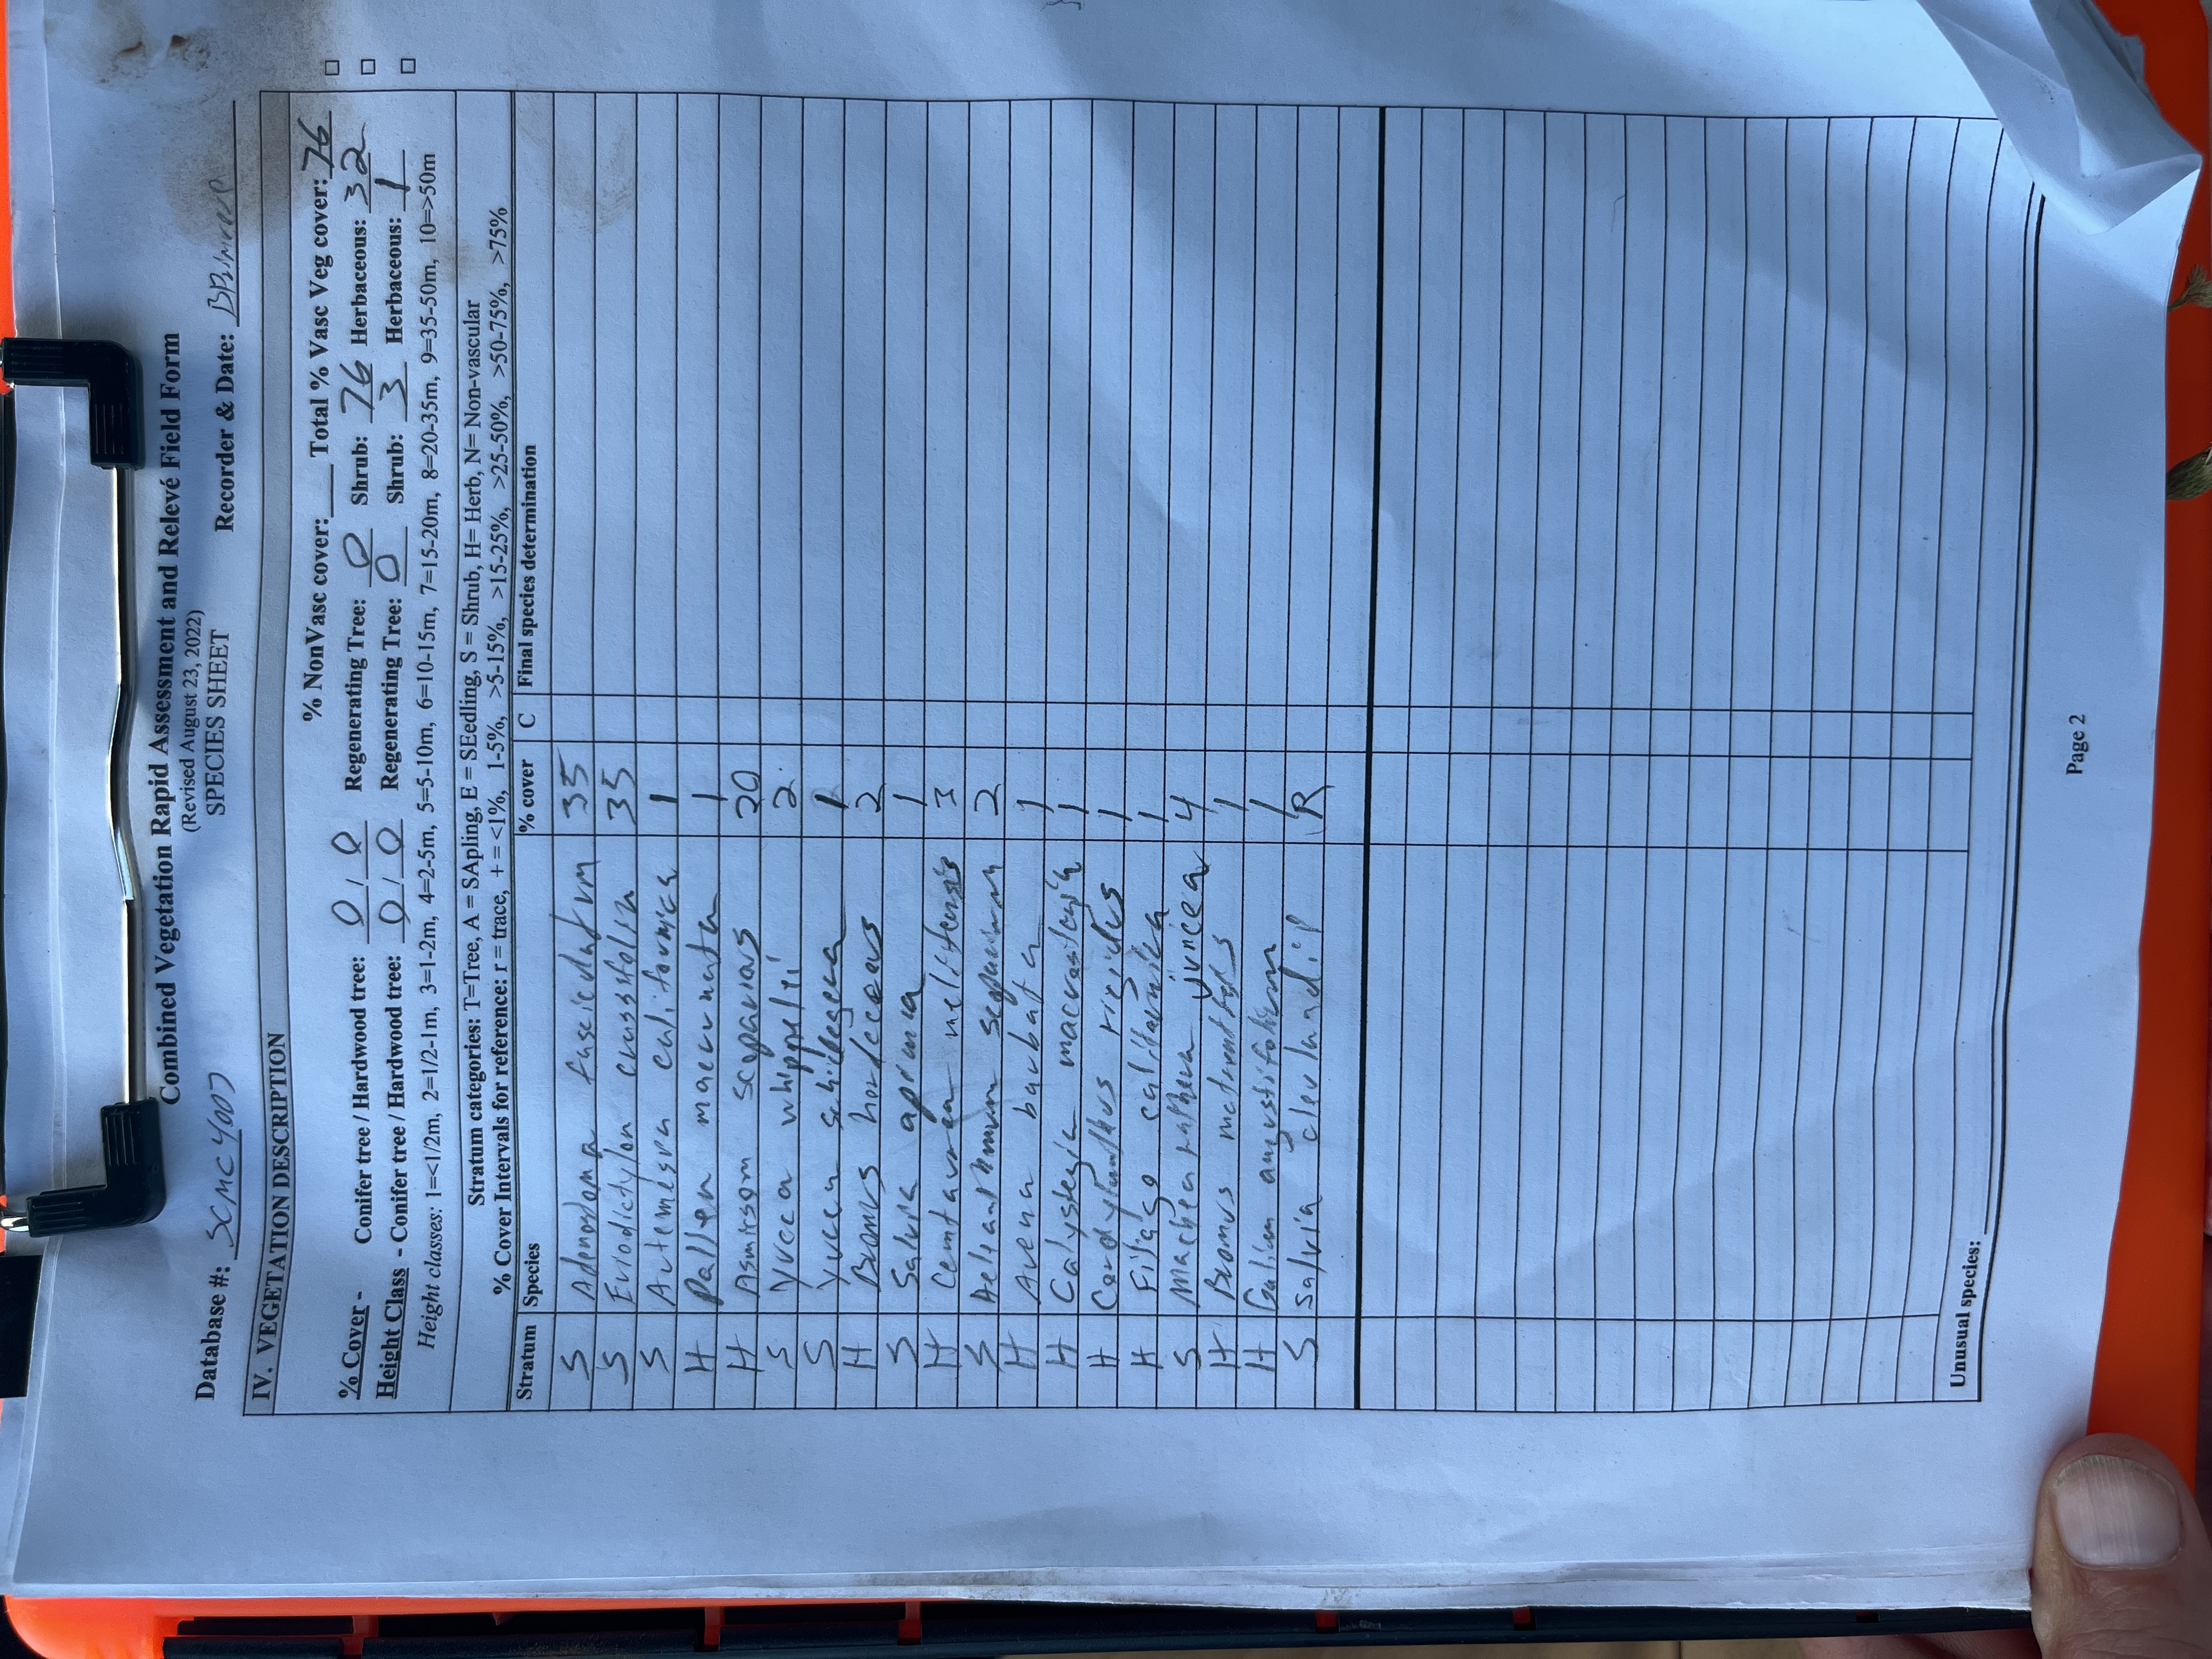 Combined Vegetation Rapid Assessment and Relevé Field Form
(Revised August 23, 2022)
SPECIES SHEET
Database #: SCMC4007 Recorder & Date:
IV. VEGETATION DESCRIPTION
% NonVasc cover:____ Total % Vasc Veg cover: 76
% Cover - Conifer tree / Hardwood tree: 0 / 0 Regenerating Tree: 0 Shrub: 76 Herbaceous: 32
Height Class - Conifer tree / Hardwood tree: 0 / 0 Regenerating Tree: 0 Shrub: 3 Herbaceous: 1
Height classes: 1=<1/2m, 2=1/2-1m, 3=1-2m, 4=2-5m, 5=5-10m, 6=10-15m, 7=15-20m, 8=20-35m, 9=35-50m, 10=>50m
Stratum categories: T=Tree, A = SApling, E = SEedling, S = Shrub, H= Herb, N= Non-vascular
% Cover Intervals for reference: r = trace, + = <1%, 1-5%, >5-15%, >15-25%, >25-50%, >50-75%, >75%
Stratum Species % cover C Final species determination
S Adenostoma fasciculatum 35
S Eriodictylon crassifolia 35
S Artemisra californica 1
H macrunata 1
H scoparious 20
S Yucca whippleii 2
S Yucca schidegera 1
H Bromus hordeceous 2
S Salvia apiana 1
H Centaurea mellitensis 3
S Helianthmum scoparium 2
H Avena barbata 1
H Calystegia macrostegia 1
H Cordylanthus rigidus 1
H Filago californica 1
S juncea 4
H Bromus 1
H Galium angustifolium 1
S Salvia clevelandii R
Unusual species:
Page 2